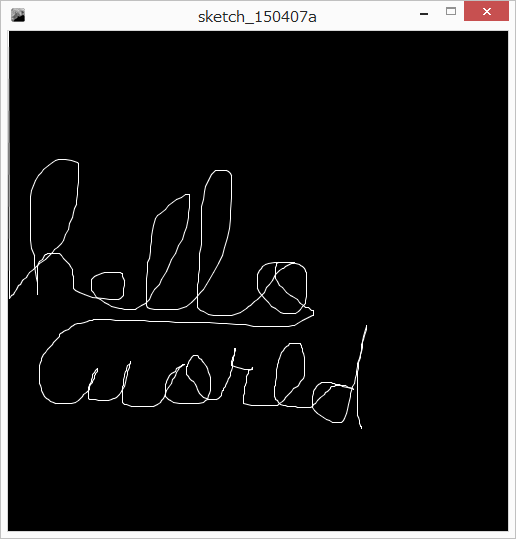 sketch_150407a
hello
world